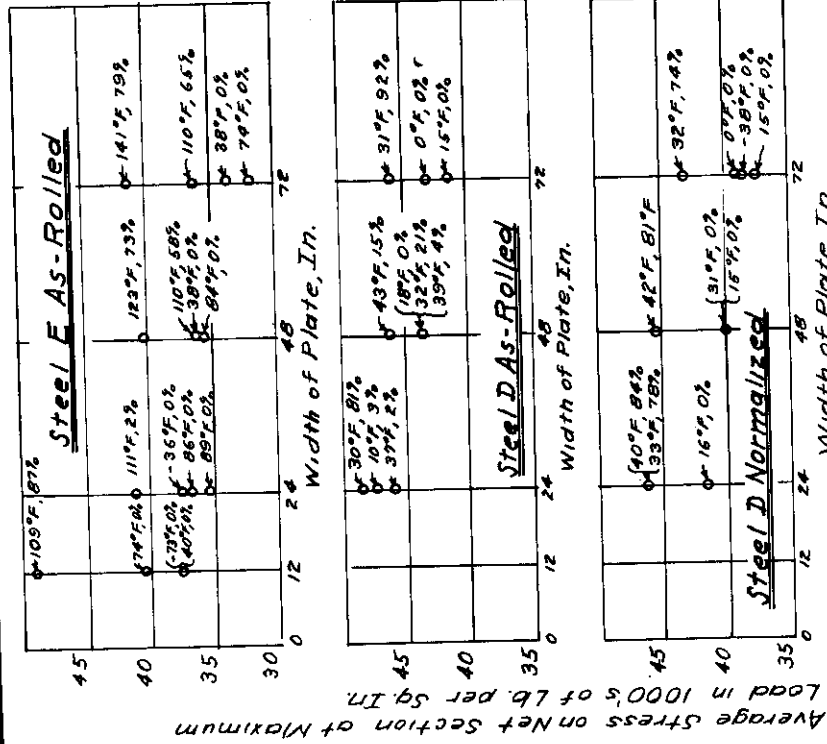 Steel E As-Rolled
109°F, 87%
74°F, 0%
-73°F, 0%
40°F, 0%
111°F, 2%
-36°F, 0%
86°F, 0%
89°F, 0%
123°F, 73%
110°F, 58%
38°F, 0%
84°F, 0%
141°F, 79%
110°F, 65%
38°F, 0%
74°F, 0%
45
40
35
30
0
12
24
48
72
Width of Plate, In.
Steel D As-Rolled
30°F, 81%
10°F, 3%
37°F, 2%
43°F, 15%
18°F, 0%
32°F, 21%
39°F, 4%
31°F, 92%
0°F, 0%
15°F, 0%
45
40
35
0
12
24
48
72
Width of Plate, In.
Steel D Normalized
40°F, 84%
33°F, 78%
16°F, 0%
42°F, 81°F
31°F, 0%
15°F, 0%
32°F, 74%
0°F, 0%
-38°F, 0%
15°F, 0%
45
40
35
0
12
24
48
72
Width of Plate, In.
Average Stress on Net Section at Maximum
Load in 1000's of Lb. per Sq. In.